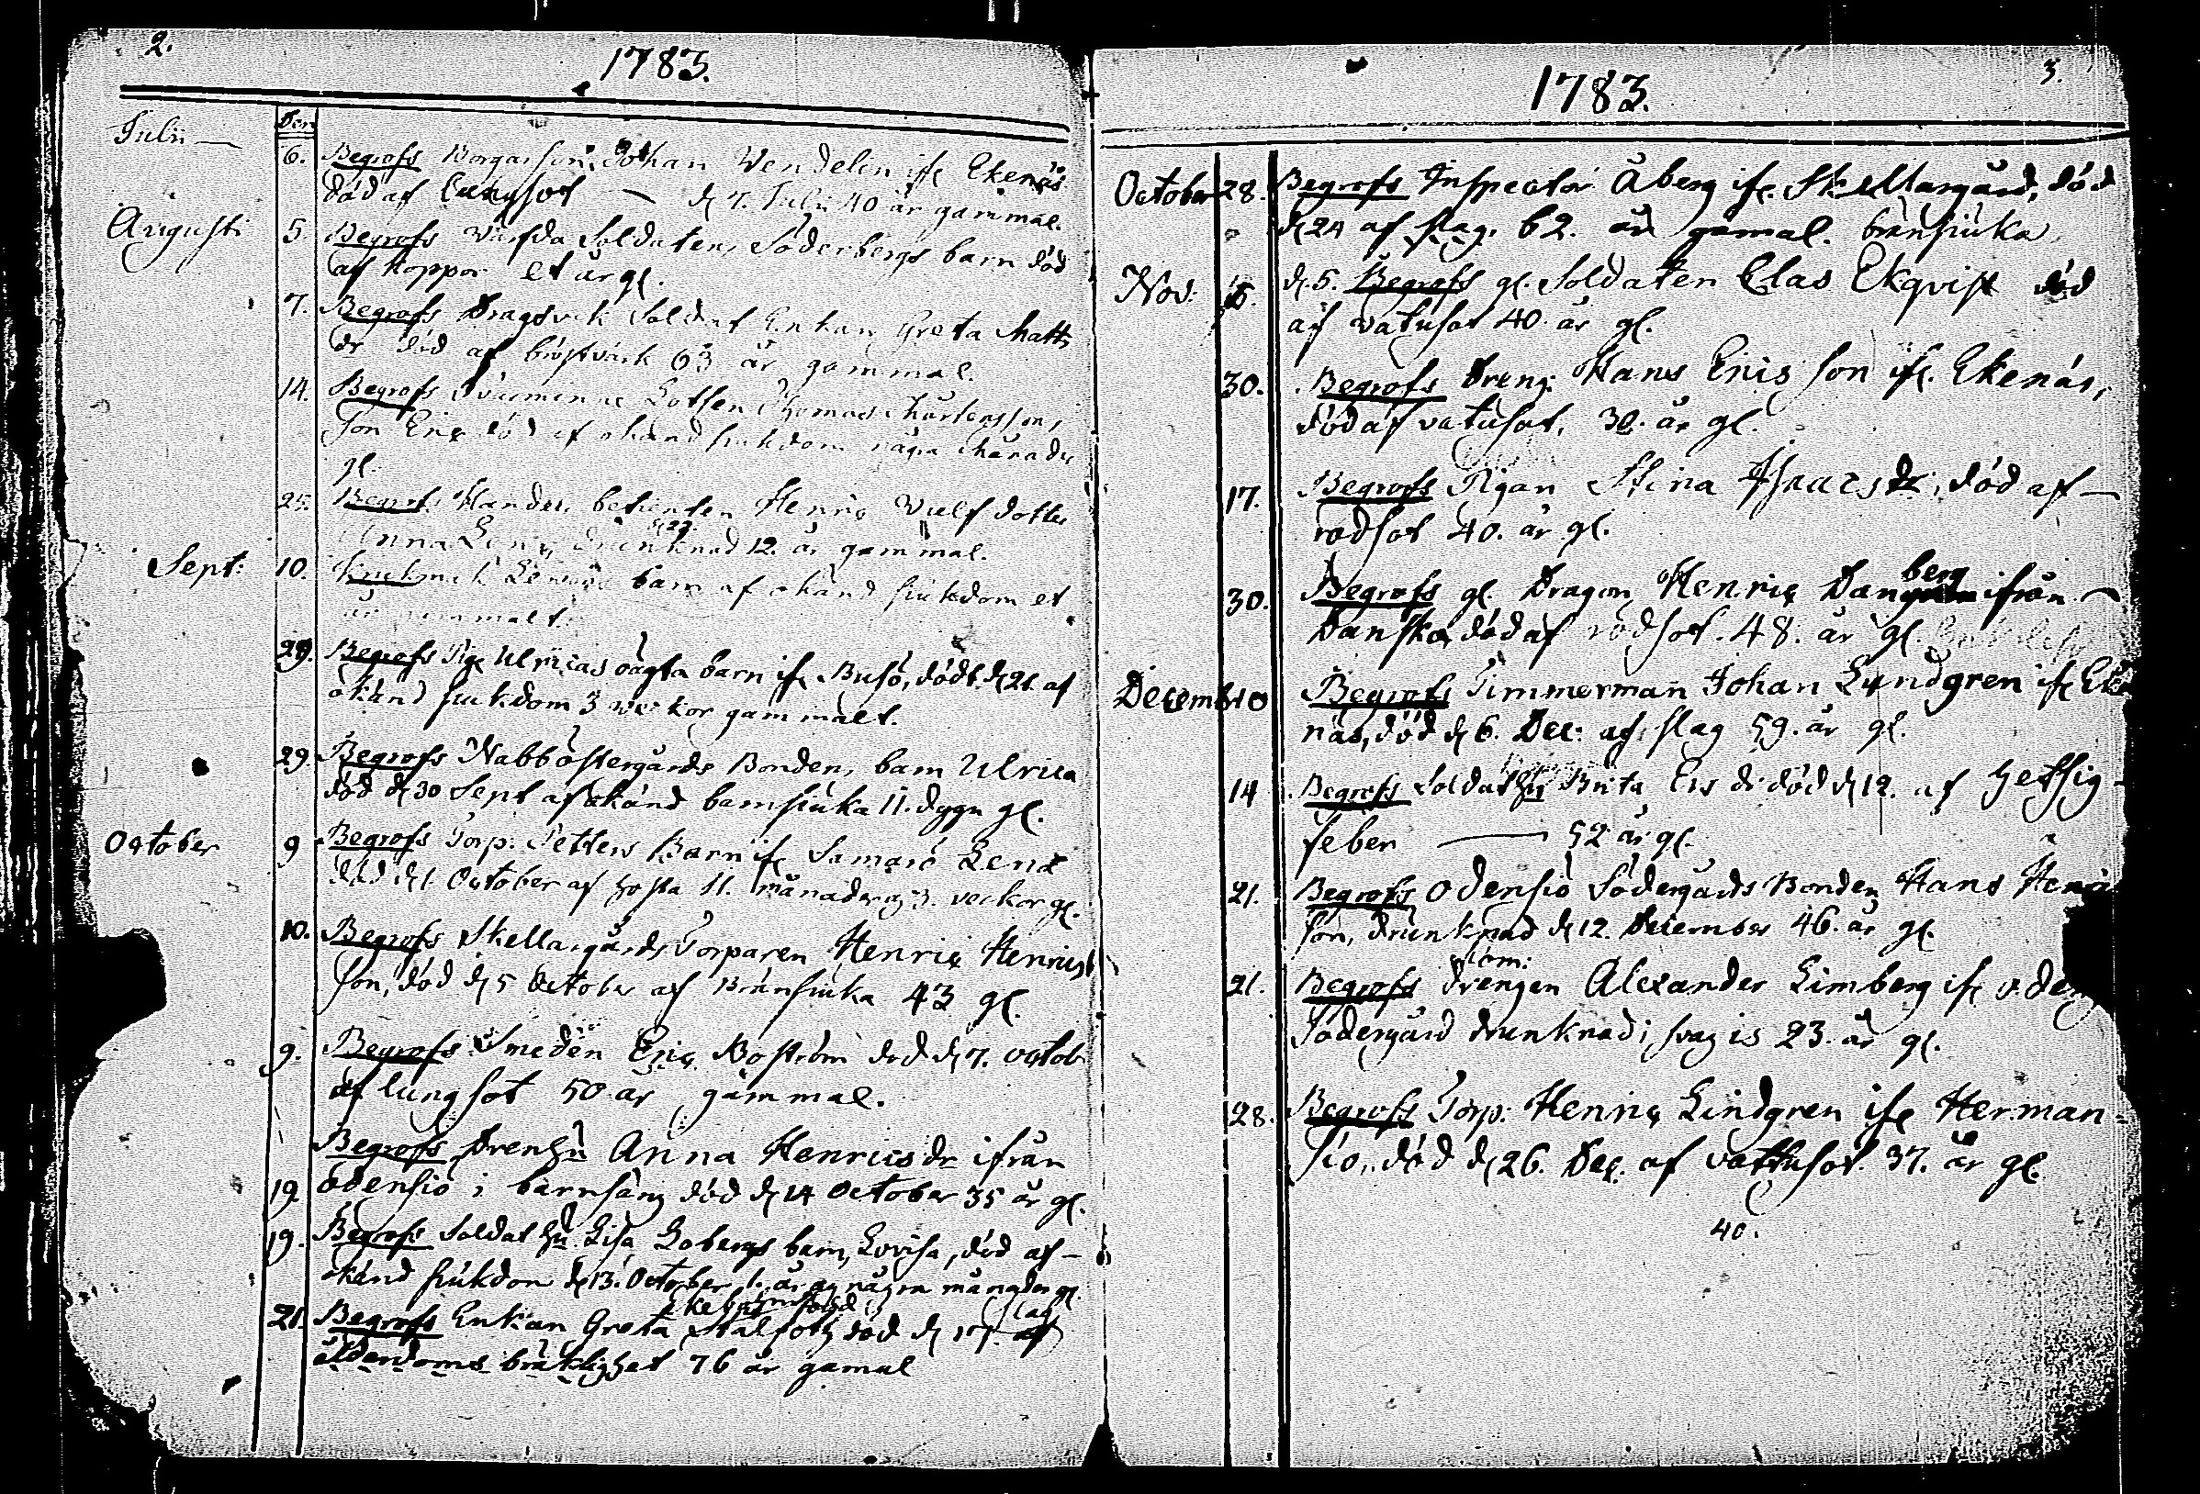 2.
1783.
Den
Julii 6. Begrofs Borgarson Johan Wendelin ifr Ekenäs
död af lungsot — d 7. Julii 40 år gammal.
Augusti 5. Begrofs Soldaten Söderbergs barn död
af koppor et år gl.
7. Begrofs Dragsvik Soldat Enkan Greta Matts
dr död af bröstvärk 63 år gammal.
14. Begrofs Lotsen Thomas Mårtensson,
son Eric död af okänd siukdom några månader
gl.
25. Begrofs Handels betienten Henric Wulf dotter
d 22.
Anna drunknad 12. år gammal.
Sept: 10. barn af okänd siukdom et
år gammalt.
29. Begrofs Pig. Ulricas oägta barn ifr Busö, födt. d 21. af
okänd siukdom 3 veckor gammalt.
29. Begrofs Nabböstergårds Bonden, barn Ulrica
död d 30 Sept af okänd barnsiuka 11. dygn gl.
October 9 Begrofs Torp. Petters Barn ifr Samsö Lena
död d 1. October af hosta 11. månader oc 3. veckor gl.
10. Begrofs Skellargårds Torparen Henric Henrics
son, död d 5 October af Bränsiuka 43 gl.
9. Begrofs Smeden Eric Boström död d 7. octob
af lungsot 50 år gammal.
Begrofs Drenghu Anna Henricsdr ifrån
19. odensiö i barnsäng död d 14 October 35 år gl.
19. Begrofs Soldat hu Lisa Lobergs barn, Lovisa, död af —
okänd siukdom d 13. October 1. år och några månader gl.
21. Begrofs Enkan Greta Stålfoth död d 17. af
ålderdoms bräklighet 76 år gamal
3.
1783.
October 28. Begrofs Inspector Åberg ifr. Skellargård, död
d 24 af slag. 62. år gamal. bränsiuka
Nov: 5. d. 5. Begrofs gl. Soldaten Clas Ekqvist död
af vatusot 40 år gl.
30. Begrofs Dreng. Hans Ericsson ifr. Ekenäs,
död af vatusot, 30. år gl.
17. Begrofs Pigan Stina Isaacs dr. död af —
rodsot 40. år gl.
berg
30. Begrofs gl. Dragon Henric Dan ifrån —
Danskog död af rodsot. 48. år gl.
Decemb 10 Begrofs Timmerman Johan Lundgren ifr Eke
näs, död d 6. Dec: af slag 59. år gl.
14 Begrofs Soldat hu Brita Ers dr död d 12. af Hetsig
feber — 52 år gl.
21. Begrofs Odensiö Södergårds Bonden Hans Henric
son, drunknad d 12. December 46. år gl.
21. Begrofs Drengen Alexander Limberg ifr oden
Södergård drunknad i svag is 23. år gl.
28. Begrofs Torp: Henric Lindgren ifr Herman=
siö, död d 26. Dec. af vattusot 37. år gl.
40.